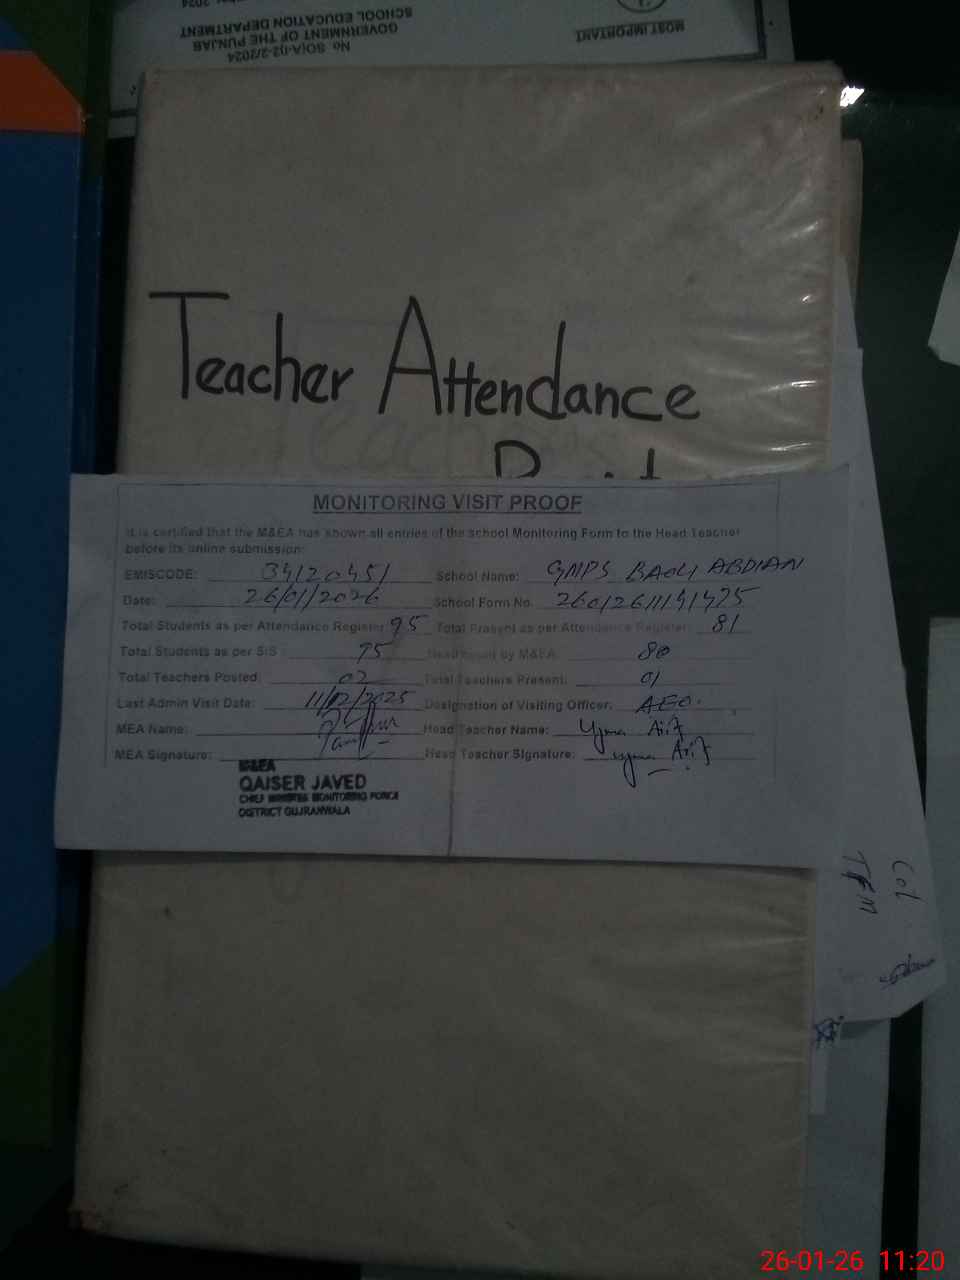 No SO(A-I)2-2/2024
GOVERNMENT OF THE PUNJAB
SCHOOL EDUCATION DEPARTMENT
MOST IMPORTANT
Teacher Attendance
MONITORING VISIT PROOF
It is certified that the M&EA has shown all entries of the school Monitoring Form to the Head Teacher
before its online submission:
EMISCODE: 34120451 School Name: GMPS BAOLI ABDIAN
Date: 26/01/2026 School Form No. 260126111141475
Total Students as per Attendance Register 95 Total Present as per Attendance Register: 81
Total Students as per SIS 95 Headcount by M&EA: 80
Total Teachers Posted: 02 Total Teachers Present: 01
Last Admin Visit Date: 11/12/2025 Designation of Visiting Officer: AEO.
MEA Name: Head Teacher Name: Arif
MEA Signature: Head Teacher Signature: Arif
M&EA
QAISER JAVED
CHIEF MINISTER MONITORING FORCE
DISTRICT GUJRANWALA
Col
26-01-26 11:20